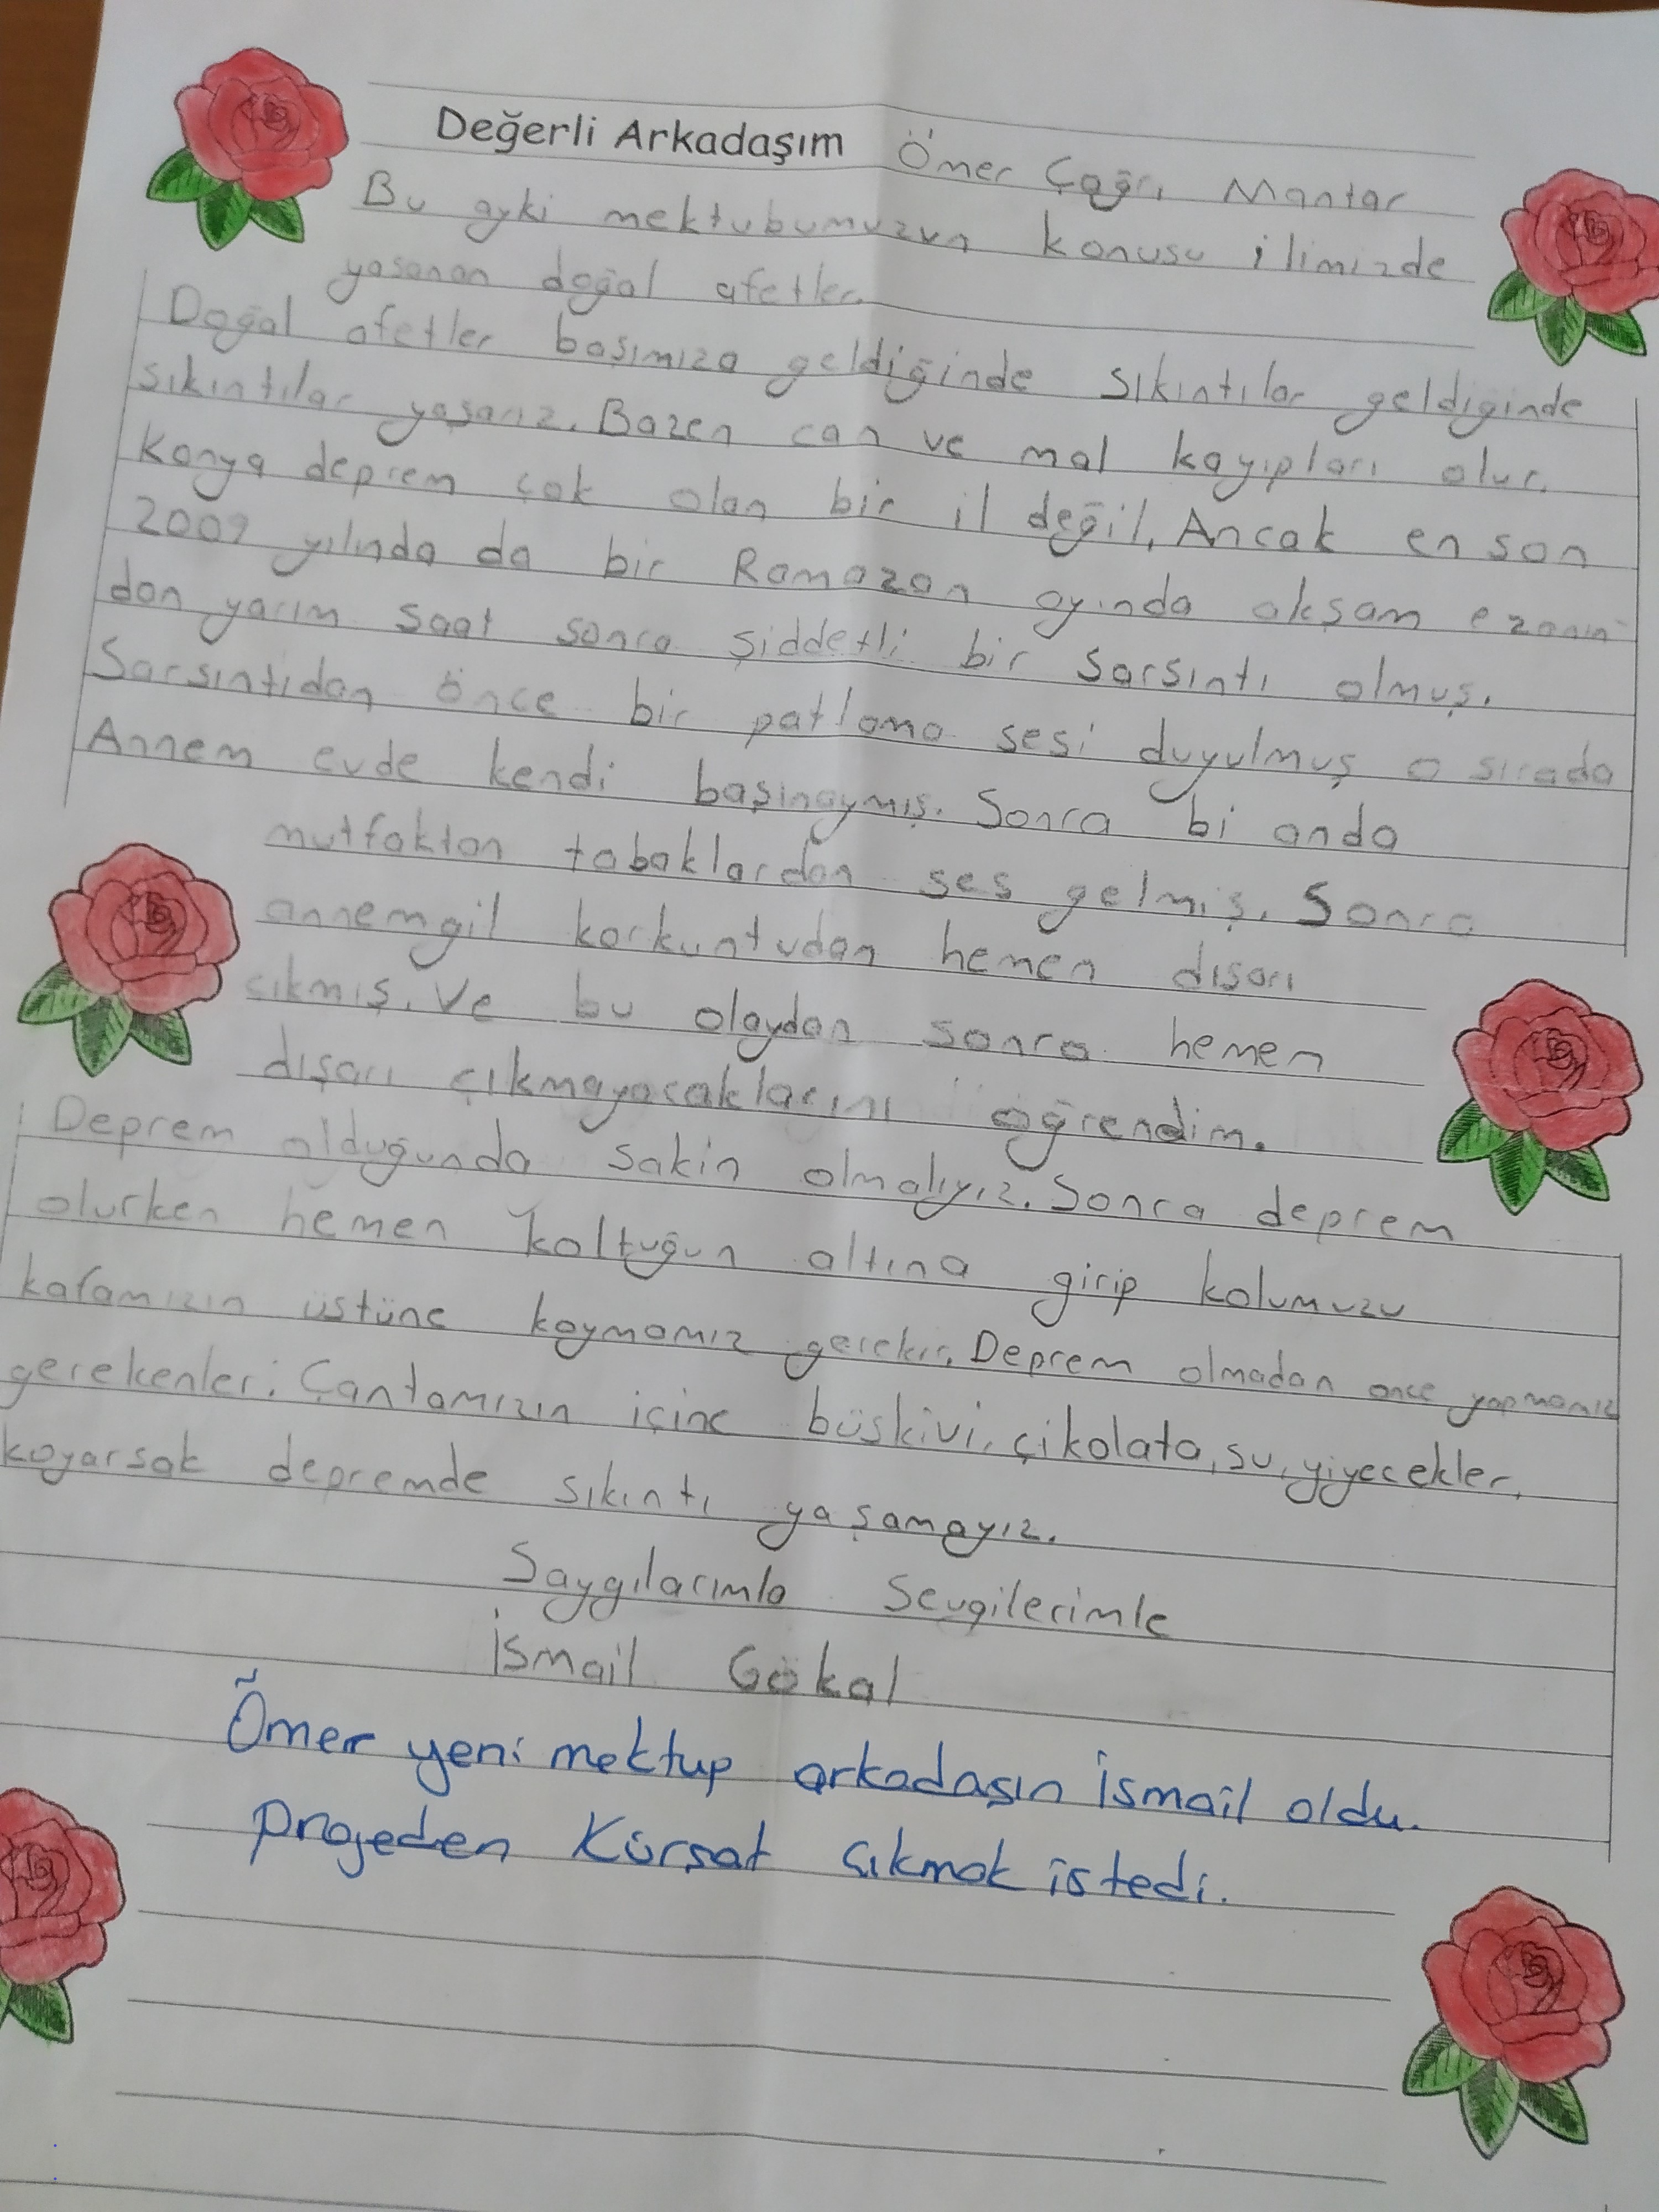 Değerli Arkadaşım Ömer Çağrı Mantar
Bu ayki mektubumuzun konusu ilimizde
yaşanan doğal afetler.
Doğal afetler başımıza geldiğinde sıkıntılar geldiginde
sıkıntılar yaşarız. Bazen can ve mal kayıpları olur.
Konya deprem çok olan bir il değil. Ancak en son
2009 yılında da bir Ramazan ayında akşam ezanın
dan yarım saat sonra şiddetli bir sarsıntı olmuş.
Sarsıntıdan önce bir patlama sesi duyulmuş o sırada
Annem evde kendi başınaymış. Sonra bi anda
mutfaktan tabaklardan ses gelmiş. Sonra
annemgil korkuntudan hemen dışarı
çıkmış. Ve bu olaydan sonra hemen
dışarı çıkmayacaklarını öğrendim.
Deprem olduğunda sakin olmalıyız. Sonra deprem
olurken hemen koltuğun altına girip kolumuzu
kafamızın üstüne koymamız gerekir. Deprem olmadan önce yapmamız
gerekenler: Çantamızın içine büskivi, çikolata, su, yiyecekler,
koyarsak depremde sıkıntı yaşamayız.
Saygılarımla Sevgilerimle
İsmail Gökal
Ömer yeni mektup arkadaşın İsmail oldu.
projeden Kürşat çıkmak istedi.